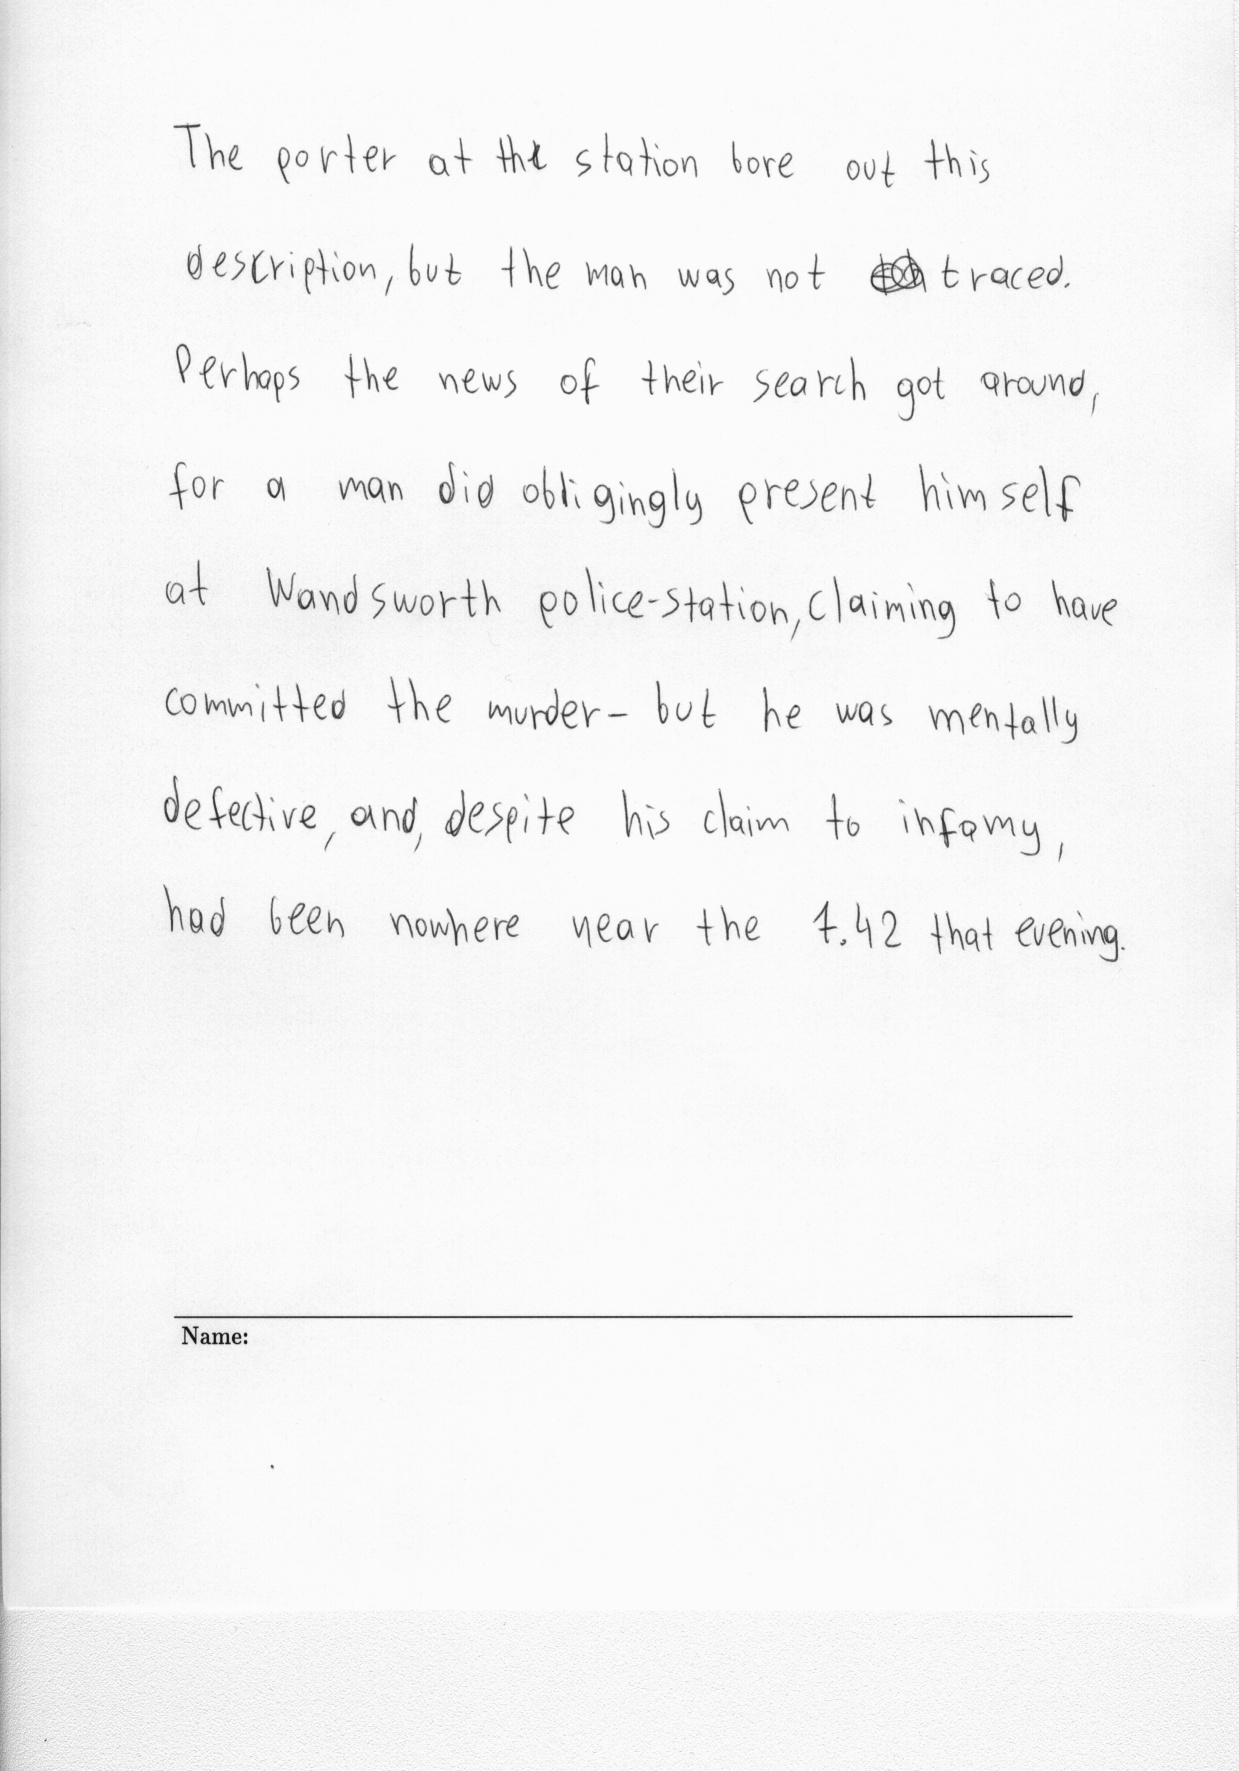 The porter at the station bore out this
description, but the man was not traced.
Perhaps the news of their search got around,
for a man did obligingly present himself
at Wandsworth police-station, claiming to have
committed the murder - but he was mentally
defective, and, despite his claim to infamy,
had been nowhere near the 7.42 that evening.
Name: